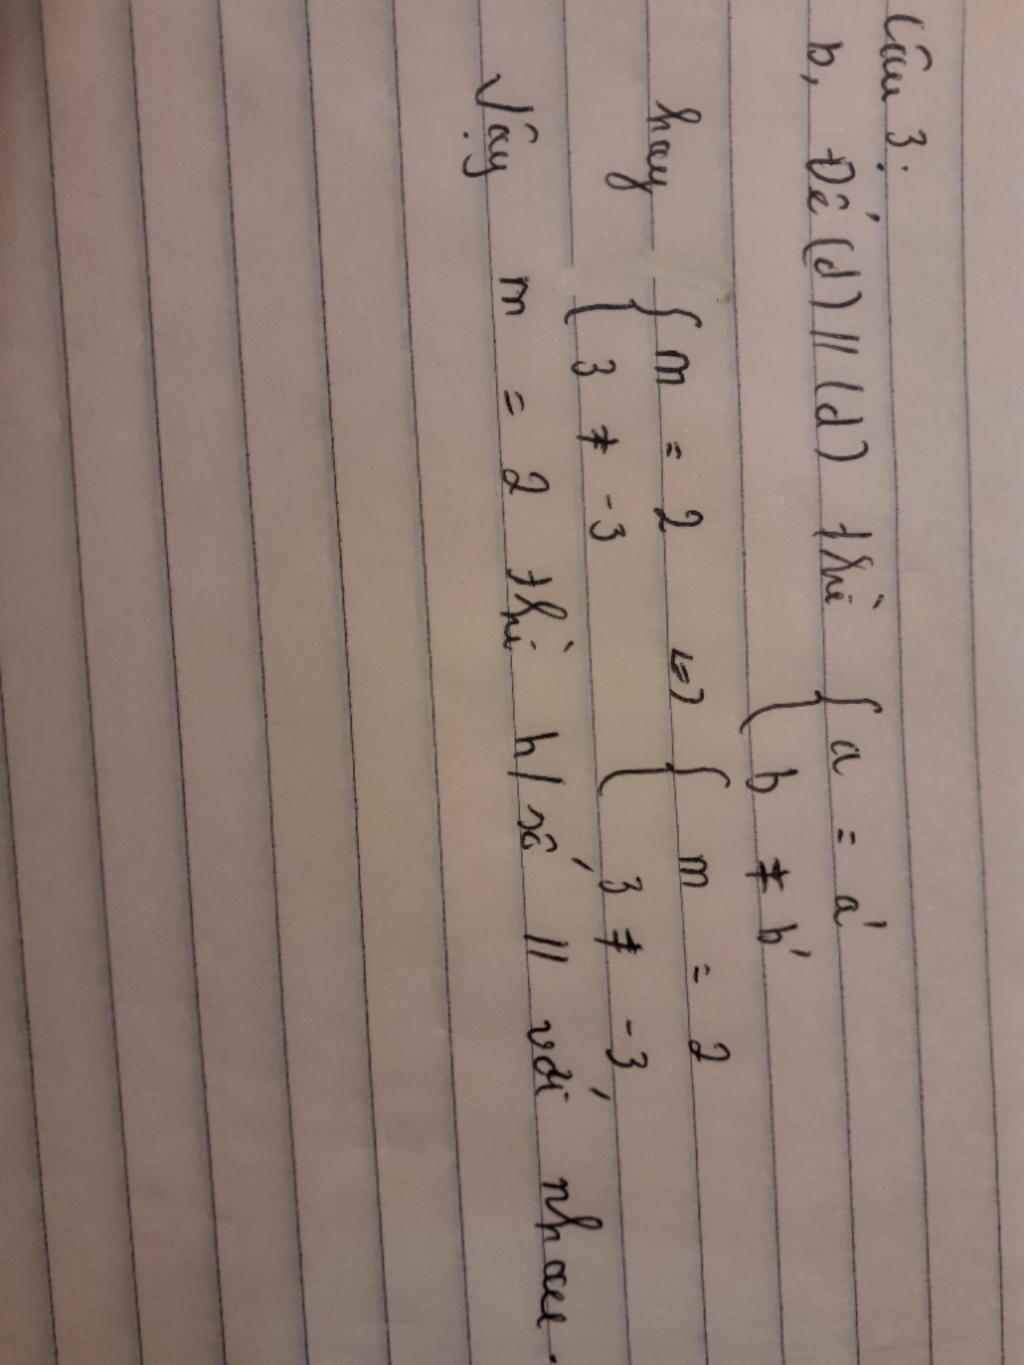 Câu 3:
b, Để (d) // (d) thì { a = a'
b ≠ b'
hay { m = 2 <=> { m = 2
3 ≠ -3 3 ≠ -3
Vậy m = 2 thì h/số // với nhau.